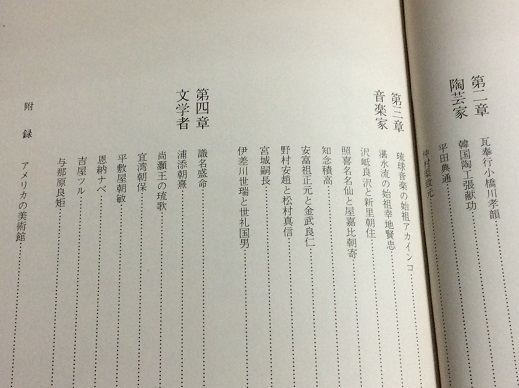 第二章
陶芸家
瓦奉行小橋川孝韻
韓国陶工張献功
平田典通
第三章
音楽家
琉球音楽の始祖アカインコ
湛水流の始祖幸地賢忠
沢岻良沢と新里朝住
照喜名名仙と屋嘉比朝寄
知念積高
安富祖正元と金武良仁
野村安趙と松村真信
宮城嗣長
伊差川世瑞と世礼国男
第四章
文学者
識名盛命
浦添朝熹
尚灝王の琉歌
宜湾朝保
平敷屋朝敏
恩納ナベ
吉屋ツル
与那原良矩
附録
アメリカの美術館